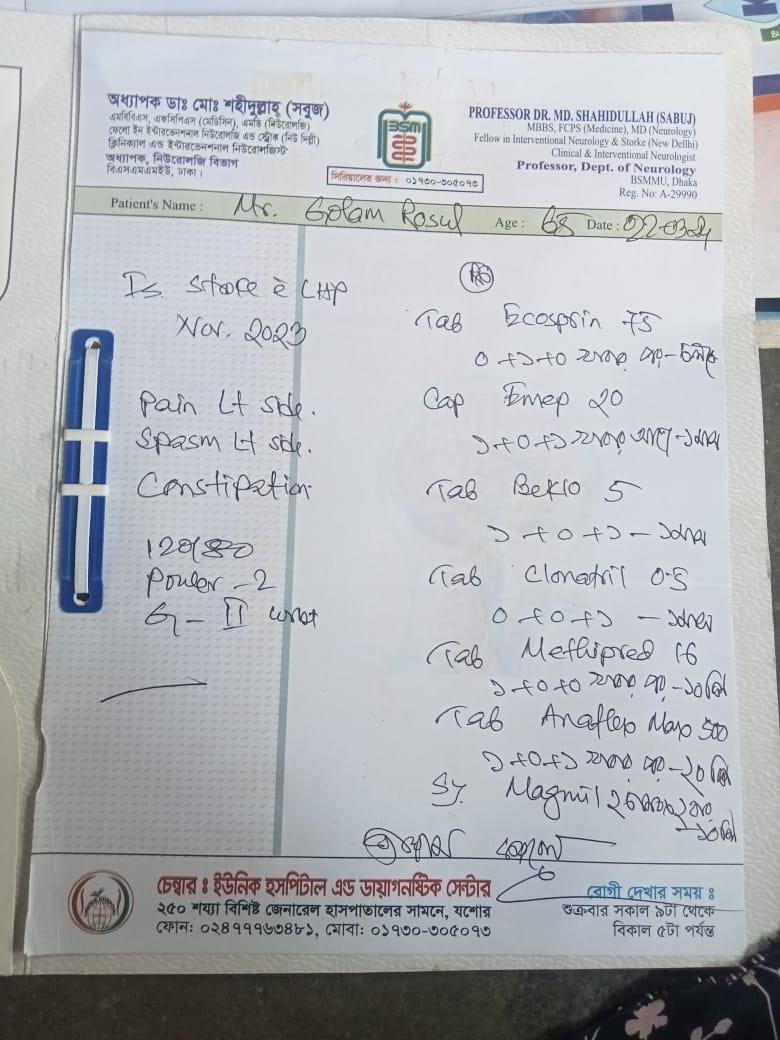 অধ্যাপক ডাঃ মোঃ শহীদুল্লাহ (সবুজ)
এমবিবিএস, এফসিপিএস (মেডিসিন), এমডি (নিউরোলজি)
ফেলো ইন ইন্টারভেনশনাল নিউরোলজি এন্ড স্ট্রোক (নিউ দিল্লী)
ক্লিনিক্যাল এন্ড ইন্টারভেনশনাল নিউরোলজিস্ট
অধ্যাপক, নিউরোলজি বিভাগ
বিএসএমএমইউ, ঢাকা।
BSM
সিরিয়ালের জন্য : ০১৭৩০-৩০৫০৭৩
PROFESSOR DR. MD. SHAHIDULLAH (SABUJ)
MBBS, FCPS (Medicine), MD (Neurology)
Fellow in Interventional Neurology & Storke (New Dellhi)
Clinical & Interventional Neurologist
Professor, Dept. of Neurology
BSMMU, Dhaka
Reg. No: A-29990
Patient's Name : Mr. Golam Rosul Age : 65 Date :
Nov. 2023
Pain Lt side.
Spasm Lt side.
Constipation
120/80
Power -2
G - II
Tab Ecosprin 75
০+১+০
Cap Emep 20
১+০+১
Tab Beklo 5
১+০+১ -
Tab Clonatril 0.5
০+০+১ -
Tab Methipred 16
১+০+০
Tab Anaflex Max 500
১+০+১
Sy. Magmil
চেম্বার ঃ ইউনিক হসপিটাল এন্ড ডায়াগনষ্টিক সেন্টার
২৫০ শয্যা বিশিষ্ট জেনারেল হাসপাতালের সামনে, যশোর
ফোন: ০২৪৭৭৭৬৩৪৮১, মোবা: ০১৭৩০-৩০৫০৭৩
রোগী দেখার সময় ঃ
শুক্রবার সকাল ৯টা থেকে
বিকাল ৫টা পর্যন্ত